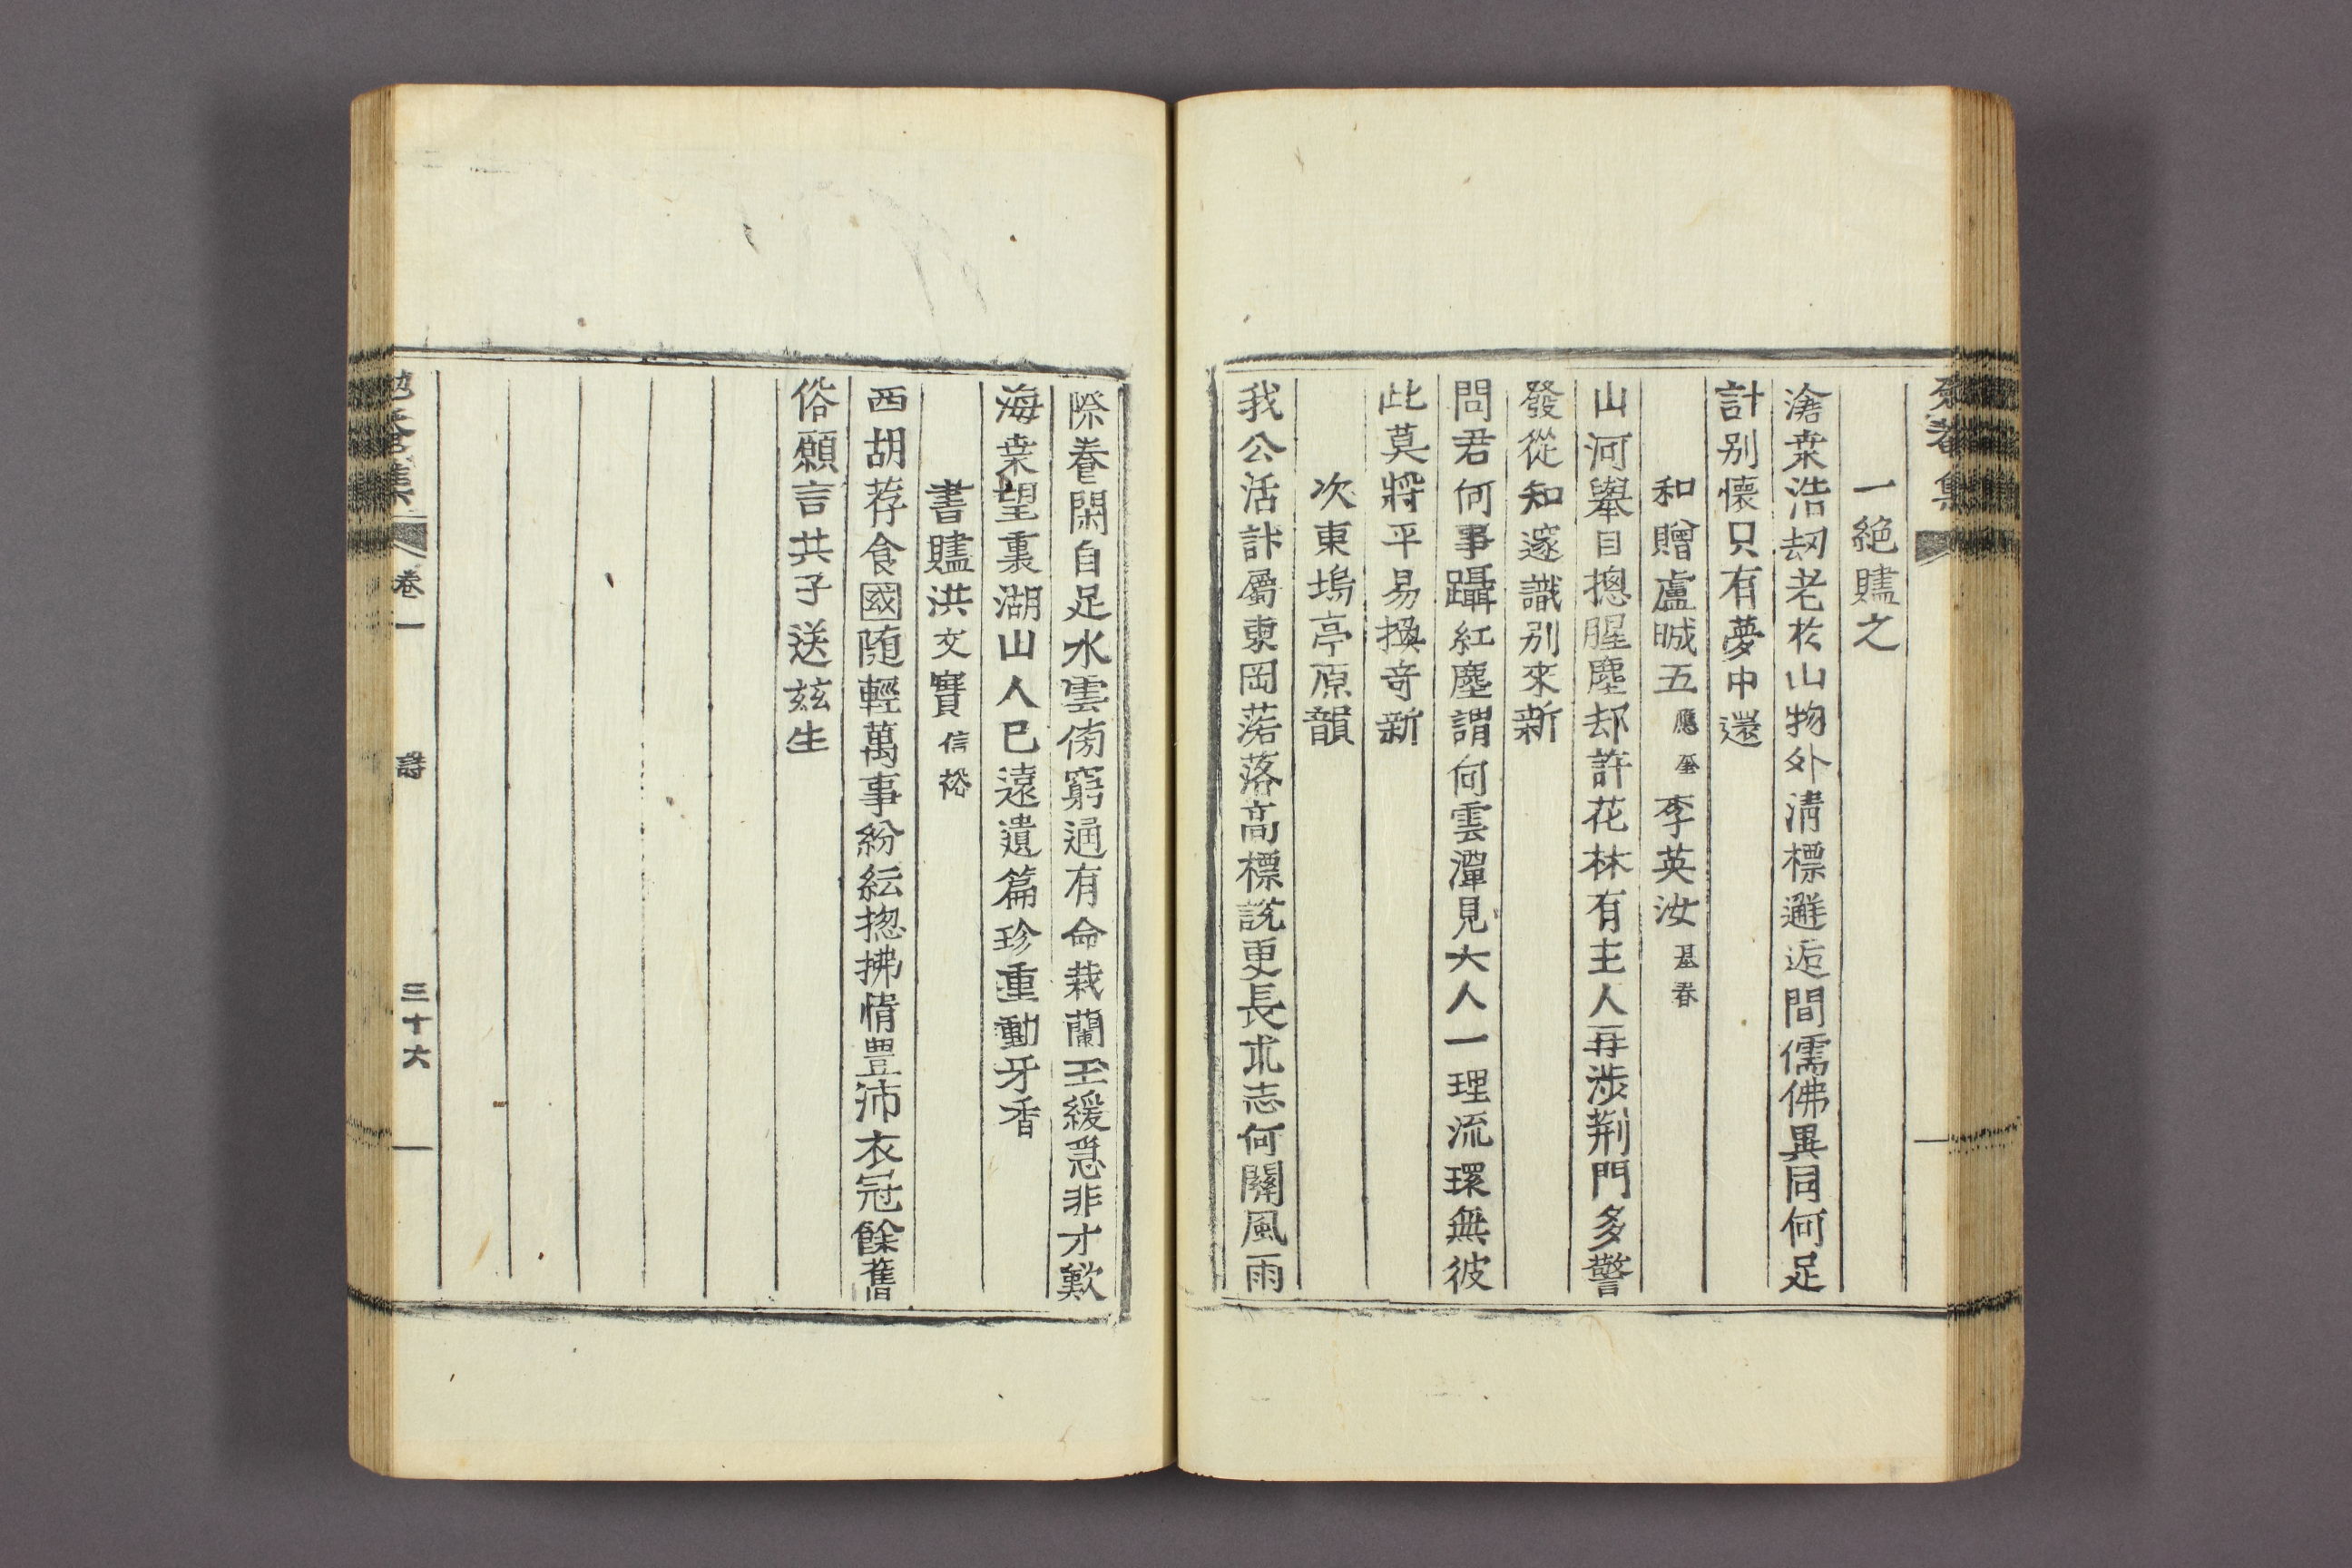 一絶贐之
滄桑浩刼老於山物外淸標邂逅間儒佛異同何足
計别懷只有夢中還
和贈盧晠五應奎李英汝基春
山河擧目摠腥塵却許花林有主人再涉荆門多警
發從知邃識别來新
問君何事躡紅塵謂何雲潭見大人一理流環無彼
此莫將平易換竒新
次東塢亭原韻
我公活計屬東岡落落高標說更長求志何關風雨
際養閑自足水雲傍窮通有命栽蘭玉緩急非才歎
海桑望裏湖山人已遠遺篇珍重動牙香
書贐洪文實信裕
西胡荐食國随輕萬事紛紜揔拂情豊沛衣冠餘舊
俗願言共子送兹生
卷一
詩
三十六